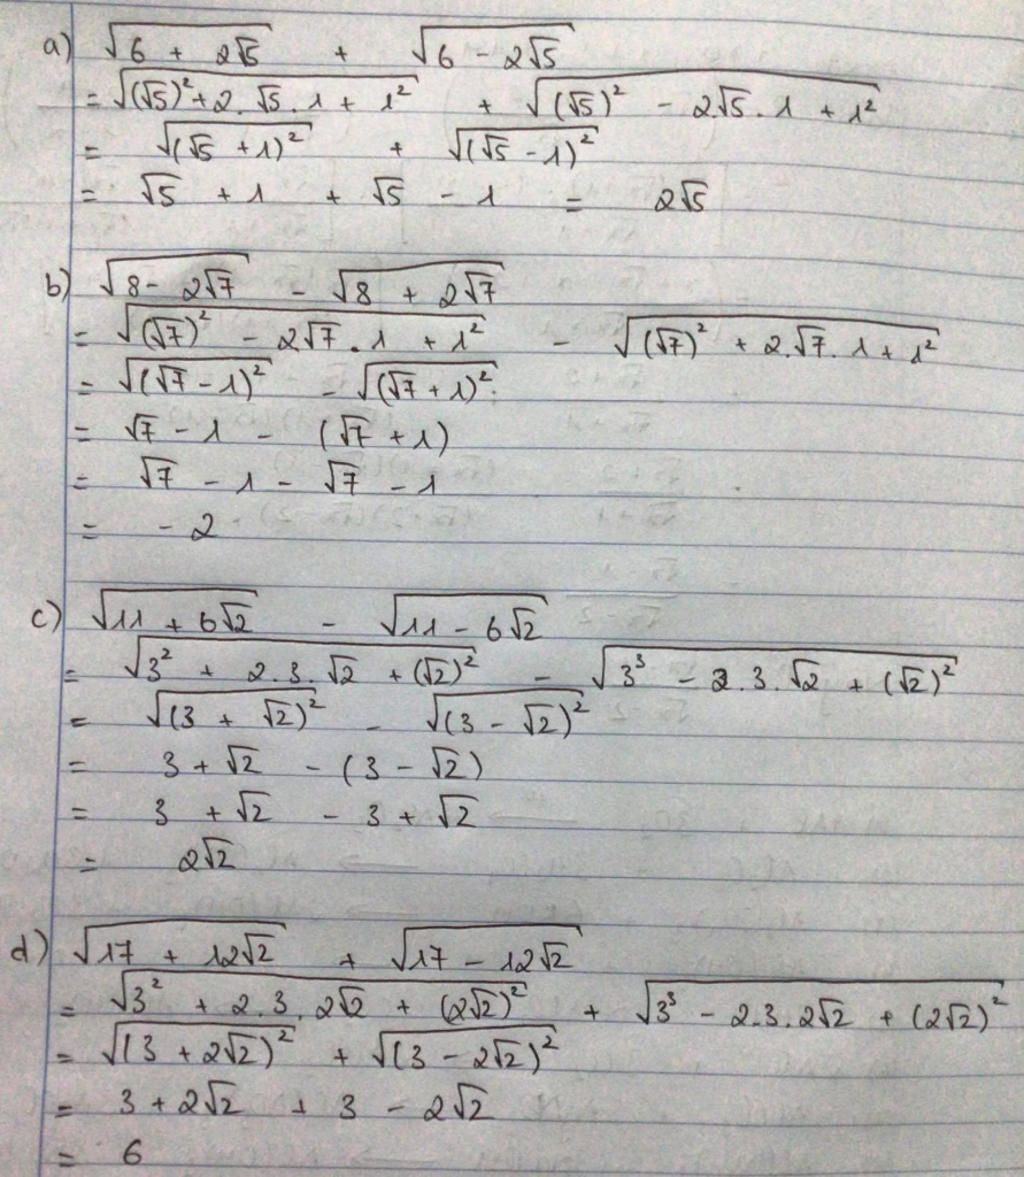 a) √(6 + 2√5) + √(6 - 2√5)
= √((√5)² + 2.√5.1 + 1²) + √((√5)² - 2.√5.1 + 1²)
= √((√5 + 1)²) + √((√5 - 1)²)
= √5 + 1 + √5 - 1 = 2√5
b) √(8 - 2√7) - √(8 + 2√7)
= √((√7)² - 2√7.1 + 1²) - √((√7)² + 2.√7.1 + 1²)
= √((√7 - 1)²) - √((√7 + 1)²)
= √7 - 1 - (√7 + 1)
= √7 - 1 - √7 - 1
= - 2
c) √(11 + 6√2) - √(11 - 6√2)
= √(3² + 2.3.√2 + (√2)²) - √(3³ - 2.3.√2 + (√2)²)
= √((3 + √2)²) - √((3 - √2)²)
= 3 + √2 - (3 - √2)
= 3 + √2 - 3 + √2
= 2√2
d) √(17 + 12√2) + √(17 - 12√2)
= √(3² + 2.3.2√2 + (2√2)²) + √(3³ - 2.3.2√2 + (2√2)²)
= √((3 + 2√2)²) + √((3 - 2√2)²)
= 3 + 2√2 + 3 - 2√2
= 6